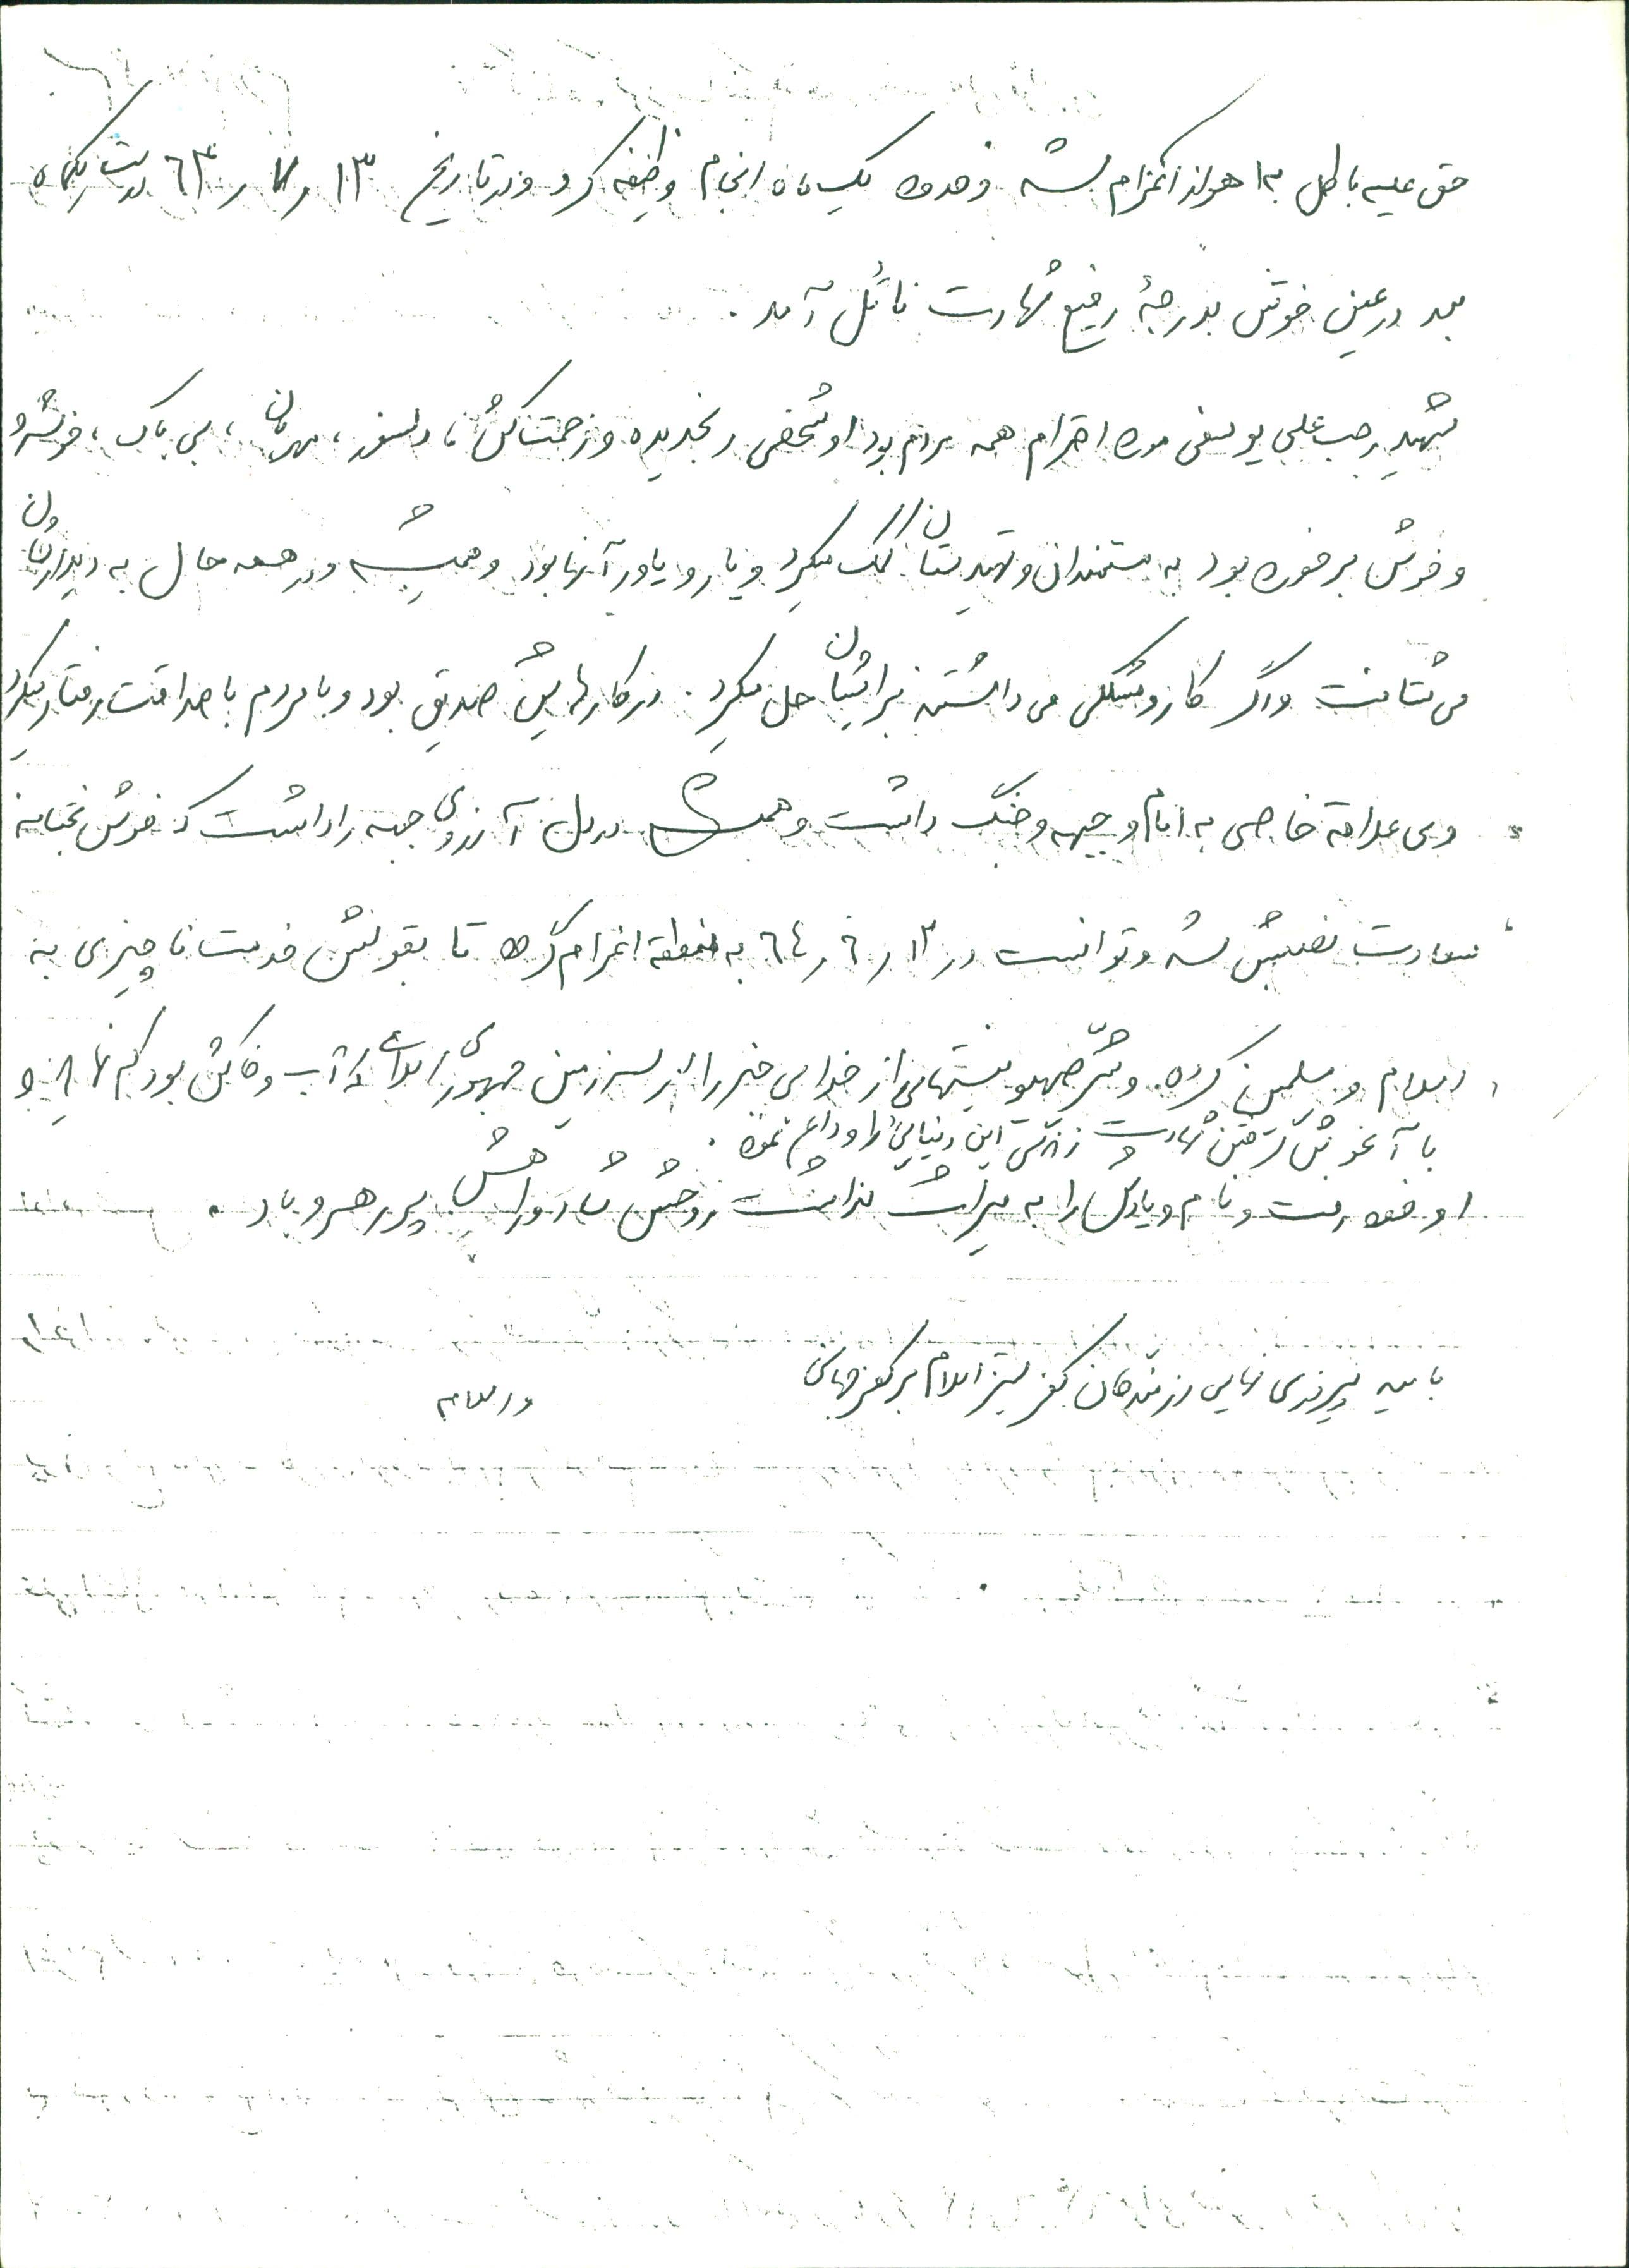 حق علیه باطل به اهواز اعزام شد و حدود یک ماه انجام وظیفه کرد و در تاریخ ۱۳ر۷ر۶۴ مدت یکماه
بعد در عین خوش بدرجهٔ رفیع شهادت نائل آمد .
شهید رجب علی یوسفی مورد احترام همه مردم بود او شخصی رنجدیده و زحمت کش، دلسوز، مهربان، بی باک، خوشرو
و خوش برخورد بود به مستمندان و تهیدستان کمک میکرد و یار و یاور آنها بود و همیشه و در همه حال به دیدارشان
می شتافت و اگر کار و مشکلی می داشتند برایشان حل میکرد . در کارهایش صدیق بود و با مردم با صداقت رفتار میکرد
وی علاقهٔ خاصی به امام و جبهه و جنگ داشت و همیشه در دل آرزوی جبهه را داشت که خوش بختانه
سعادت نصیبش شد و توانست در ۱۳ر۶ر۶۴ به منطقه اعزام گردد تا بقولش خدمت ناچیزی به
اسلام و مسلمین کرده و شر صهیونیستهای از خدا بی خبر را از سرزمین جمهوری اسلامی که آب و خاکش بود کم نماید و
با آغوش گرفتن شهادت زندگی این دنیایی را وداع نمود .
او خود رفت و نام و یادش را به میراث گذاشت روحش شاد و راهش پر رهرو باد .
بامید پیروزی نهایی رزمندگان کفر ستیز اسلام بر کفر جهانی
والسلام